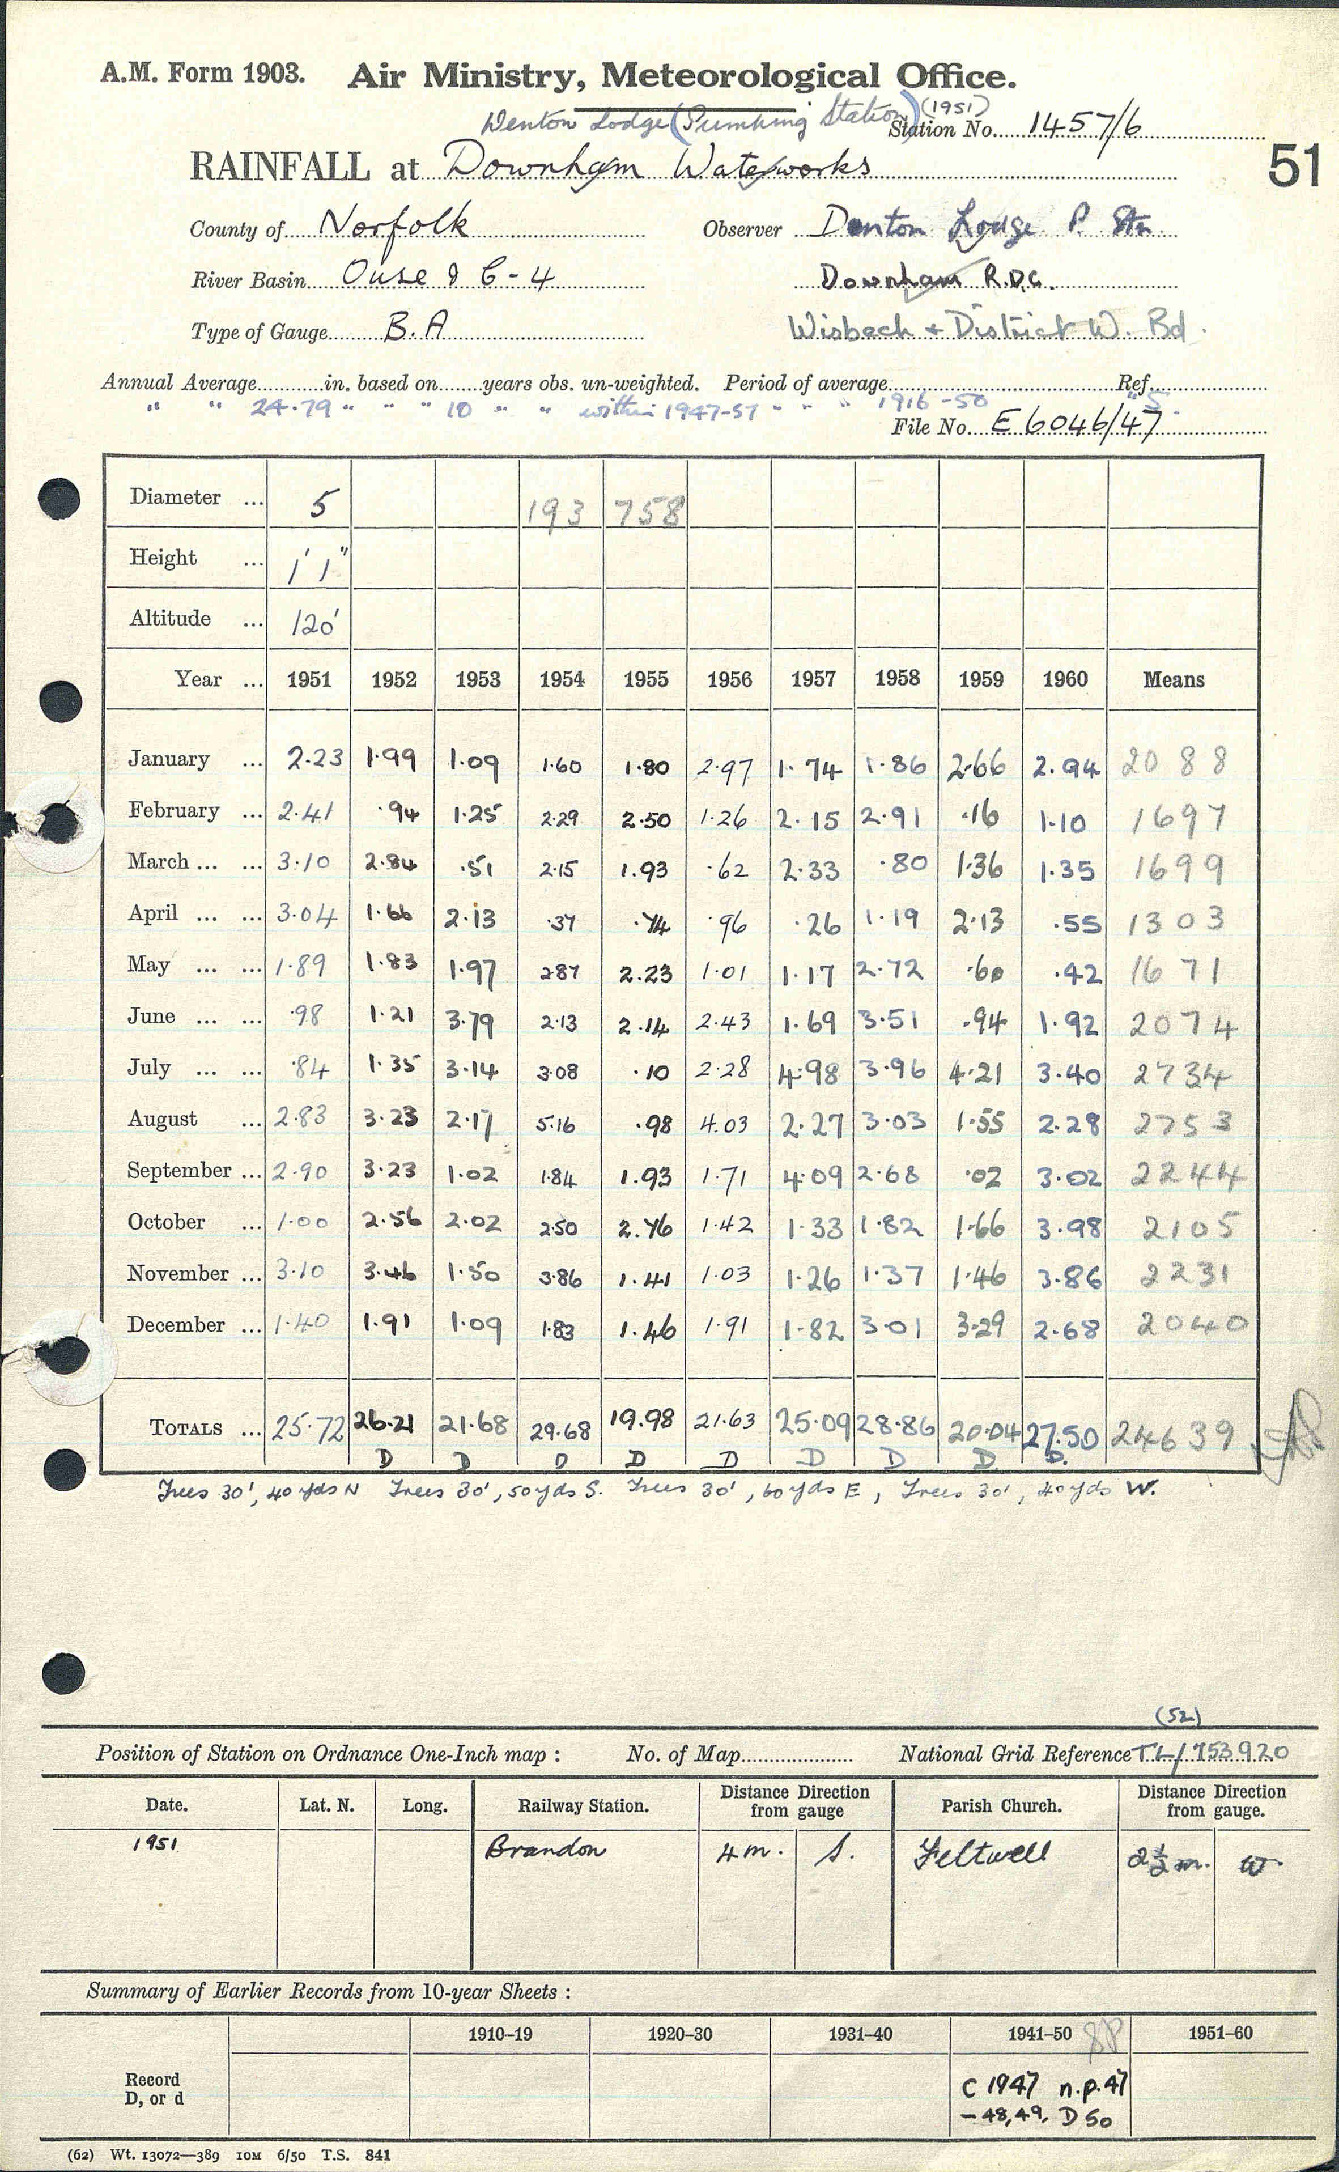 A.M. Form 1903. Air Ministry, Meteorological Office.
Denton Lodge (Pumping Station) (1951)
Station No. 1457/6
RAINFALL at Downham Waterworks
51
County of Norfolk Observer Denton Lodge P. Stn
River Basin Ouse 8 C-4 Downham R.D.C.
Type of Gauge B.A Wisbech + District W. Bd.
Annual Average in. based on years obs. un-weighted. Period of average Ref.
" " 24.79 " " " 10 " " within 1947-57 " " " 1916-50 "S".
File No. E 6046/47
Diameter ... 5 193 758
Height ... 1' 1"
Altitude ... 120'
Year ... 1951 1952 1953 1954 1955 1956 1957 1958 1959 1960 Means
January ... 2.23 1.99 1.09 1.60 1.80 2.97 1.74 1.86 2.66 2.94 20 88
February ... 2.41 .94 1.25 2.29 2.50 1.26 2.15 2.91 .16 1.10 1697
March ... ... 3.10 2.84 .51 2.15 1.93 .62 2.33 .80 1.36 1.35 1699
April ... ... 3.04 1.66 2.13 .37 .74 .96 .26 1.19 2.13 .55 1303
May ... ... 1.89 1.83 1.97 2.87 2.23 1.01 1.17 2.72 .60 .42 1671
June ... ... .98 1.21 3.79 2.13 2.14 2.43 1.69 3.51 .94 1.92 2074
July ... ... .84 1.35 3.14 3.08 .10 2.28 4.98 3.96 4.21 3.40 2734
August ... 2.83 3.23 2.17 5.16 .98 4.03 2.27 3.03 1.55 2.28 2753
September ... 2.90 3.23 1.02 1.84 1.93 1.71 4.09 2.68 .02 3.02 2244
October ... 1.00 2.56 2.02 2.50 2.76 1.42 1.33 1.82 1.66 3.98 2105
November ... 3.10 3.46 1.50 3.86 1.41 1.03 1.26 1.37 1.46 3.86 2231
December ... 1.40 1.91 1.09 1.83 1.46 1.91 1.82 3.01 3.29 2.68 2040
TOTALS ... 25.72 26.21 21.68 29.68 19.98 21.63 25.09 28.86 20.04 27.50 24639
D D D D D D D D D.
Trees 30', 40 yds N Trees 30', 50 yds S. Trees 30', 60 yds E, Trees 30', 40 yds W.
(52)
Position of Station on Ordnance One-Inch map : No. of Map National Grid Reference TL/753920
Date. Lat. N. Long. Railway Station. Distance Direction from gauge Parish Church. Distance Direction from gauge.
1951 Brandon 4 m. S. Feltwell 2½ m. W.
Summary of Earlier Records from 10-year Sheets :
1910–19 1920–30 1931–40 1941–50 1951–60
Record D, or d C 1947 n.p.47
-48,49. D 50
(62) Wt. 13072—389 10M 6/50 T.S. 841